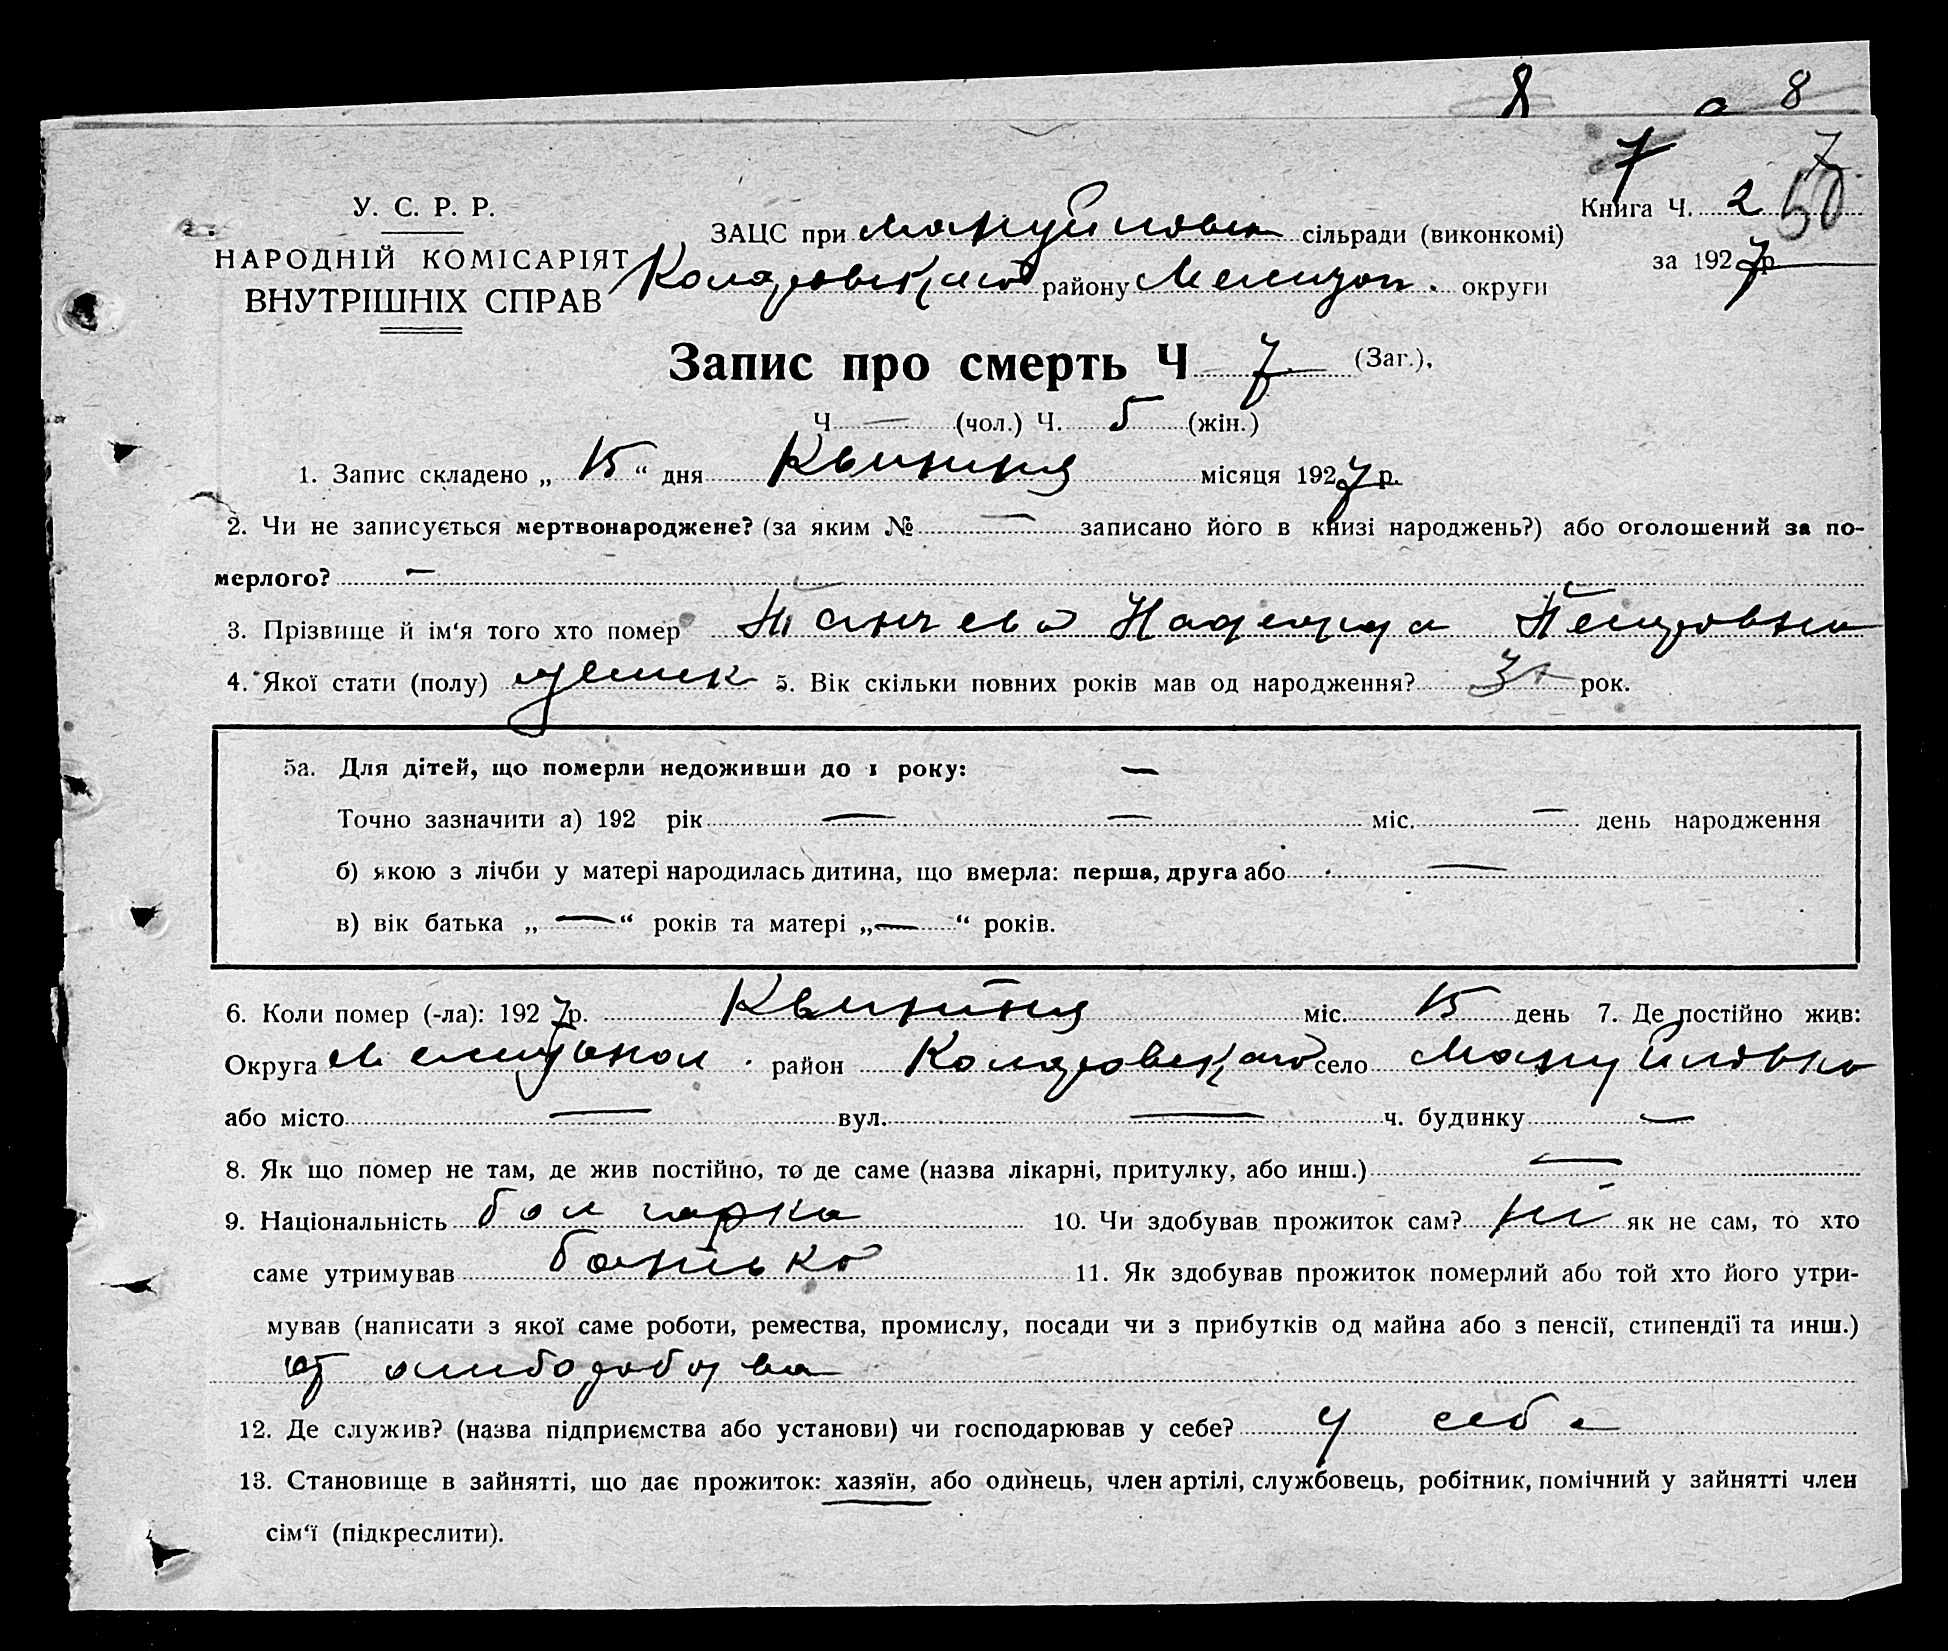 8 8
7 7
У. С. Р. Р.
НАРОДНІЙ КОМІСАРІЯТ
ВНУТРІШНІХ СПРАВ
Книга Ч. 2 50
ЗАЦС при Мануйловки сільради (виконкомі)
за 1927 р.
Коларовского району Мелитоп. округи
Запис про смерть Ч 7 (Заг.),
Ч — (чол.) Ч. 5 (жін.)
1. Запис складено „ 15 “ дня Квитня місяця 1927 р.
2. Чи не записується мертвонароджене? (за яким № — записано його в книзі народжень?) або оголошений за по-
мерлого? —
3. Прізвище й ім‘я того хто помер Надежда Петровна
4. Якої стати (полу) женск 5. Вік скільки повних років мав од народження? 3 рок.
5а. Для дітей, що померли недоживши до 1 року: —
Точно зазначити а) 192 рік — — міс. — день народження
б) якою з лічби у матері народилась дитина, що вмерла: перша, друга або —
в) вік батька „ — “ років та матері „ — “ років.
6. Коли помер (-ла): 1927 р. Квитня міс. 15 день 7. Де постійно жив:
Округа Мелитопол. район Коларовского село Мануйловка
або місто — вул. — ч. будинку —
8. Як що помер не там, де жив постійно, то де саме (назва лікарні, притулку, або инш.) —
9. Національність болгарка 10. Чи здобував прожиток сам? ні як не сам, то хто
саме утримував батько 11. Як здобував прожиток померлий або той хто його утри-
мував (написати з якої саме роботи, ремества, промислу, посади чи з прибутків од майна або з пенсії, стипендії та инш.)
от хлебороб
12. Де служив? (назва підприємства або установи) чи господарював у себе? у себе
13. Становище в зайнятті, що дає прожиток: хазяїн, або одинець, член артілі, службовець, робітник, помічний у зайнятті член
сім‘ї (підкреслити).